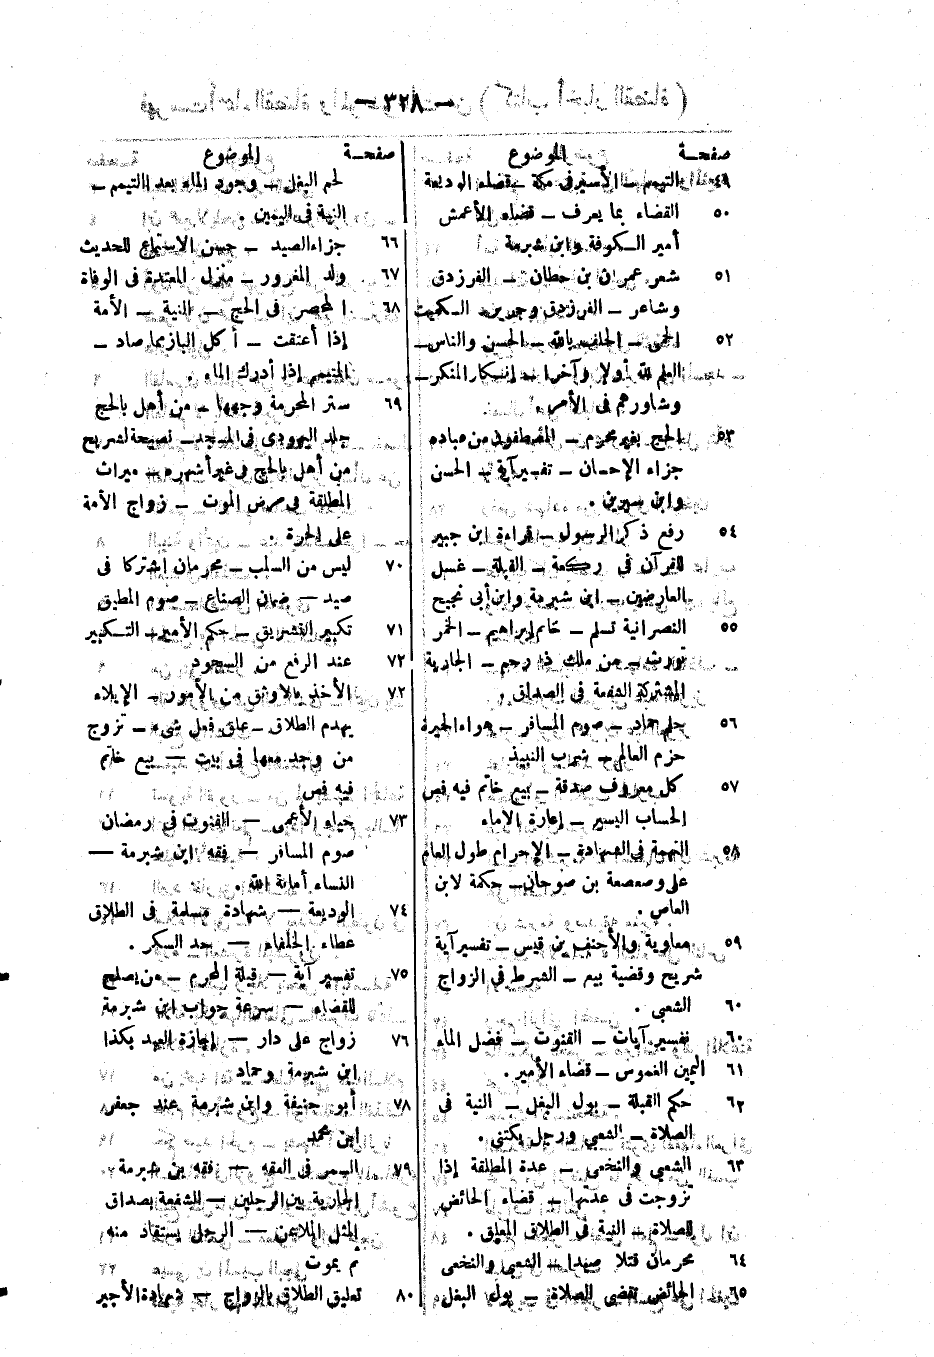 — ٣٢٨ —
صفحة الموضوع
٤٩ التيمم – الأستير فى مكة – قضاء الوديعة
٥٠ القضاء بما يعرف – قضاء الأعمش
أمير الكوفة وابن شبرمة
٥١ شعر عمران بن حطان – الفرزدق
وشاعر – الفرزدق وجرير والكميت
٥٢ – الحلف بالله – الحسن والناس –
العلم لله أولا وآخرا – إنكار المنكر –
وشاورهم فى الأمر .
٥٣ الحج بغير محرم – المصطفون من عباده
جزاء الإحسان – تفسير آية – الحسن
وابن سيرين .
٥٤ رفع ذكر الرسول – قراءة ابن جبير
للقرآن فى ركعة – القبلة – غسل
العارضين – ابن شبرمة وابن أبى نجيح
٥٥ النصرانية تسلم – خاتم إبراهيم – الخمر
تورث – من ملك ذا رحم – الجارية
المشتركة الشفعة فى الصداق .
٥٦ حلم حماد – صوم المسافر – هواء الحيرة
حزم العالم – شرب النبيذ
٥٧ كل معروف صدقة – بيع خاتم فيه فص
الحساب اليسير – إعارة الاماء
٥٨ التهمة فى الشهادة – الإحرام طول العام
على وصعصعة بن صوحان – حكمة لابن
العاص .
٥٩ معاوية والأحنف بن قيس – تفسير آية
شريح وقضية بيع – الشرط فى الزواج
٦٠ الشعبي .
٦٠ تفسير آيات – القنوت – فضل الماء
٦١ اليمين الغموس – قضاء الأمير .
٦٢ حكم القبلة – بول البغل – النية فى
الصلاة – الشعبي ورجل يكتنى .
٦٣ الشعبي والنخعى – عدة المطلقة إذا
تزوجت فى عدتها – قضاء الحائض
للصلاة – النية فى الطلاق المعلق .
٦٤ محرمان قتلا صيدا – الشعبي والنخعى
٦٥ الحائض تقضى الصلاة – بول البغل
صفحة الموضوع
لحم البغل – وجود الماء بعد التيمم –
النية فى اليمين .
٦٦ جزاء الصيد – حسن الاستماع للحديث
٦٧ ولد المغرور – منزل المعتدة فى الوفاة
٦٨ المحصر فى الحج – النية – الأمة
إذا أعتقت – أكل البازى مما صاد –
المتيمم إذا أدرك الماء .
٦٩ ستر المحرمة وجهها – من أهل بالحج
جلد اليهودى فى المسجد – نصيحة لشريح
من أهل بالحج فى غير أشهره – ميراث
المطلقة فى مرض الموت – زواج الأمة
على الحرة .
٧٠ ليس من السلب – محرمان اشتركا فى
صيد – ضمان الصناع – صوم المطبق
٧١ تكبير التشريق – حكم الأمير – التكبير
٧٢ عند الرفع من السجود
٧٢ الأخذ بالاوثق من الأمور – الإيلاء
يهدم الطلاق – علق فعل شىء – تزوج
من وجد معها فى بيت — بيع خاتم
فيه فص
٧٣ حياء الأعمى — القنوت فى رمضان
صوم المسافر — فقه ابن شبرمة —
النساء أمانة الله .
٧٤ الوديعة — شهادة مسلمة فى الطلاق
عطاء الخلفاء — حد السكر .
٧٥ تفسير آية — قبلة المحرم – من يصلح
للقضاء — سرعة جواب ابن شبرمة
٧٦ زواج على دار — إجازة العبد بكذا
ابن شبرمة وحماد
٧٨ أبو حنيفة وابن شبرمة عند جعفر
ابن محمد
٧٩ السمر فى الفقه — فقه بن شبرمة
الجارية بين الرجلين — للشفعة بصداق
المثل الملاعن — الرجل يستقاد منه
ثم يموت
٨٠ تعليق الطلاق بالزواج — شهادة الأجير